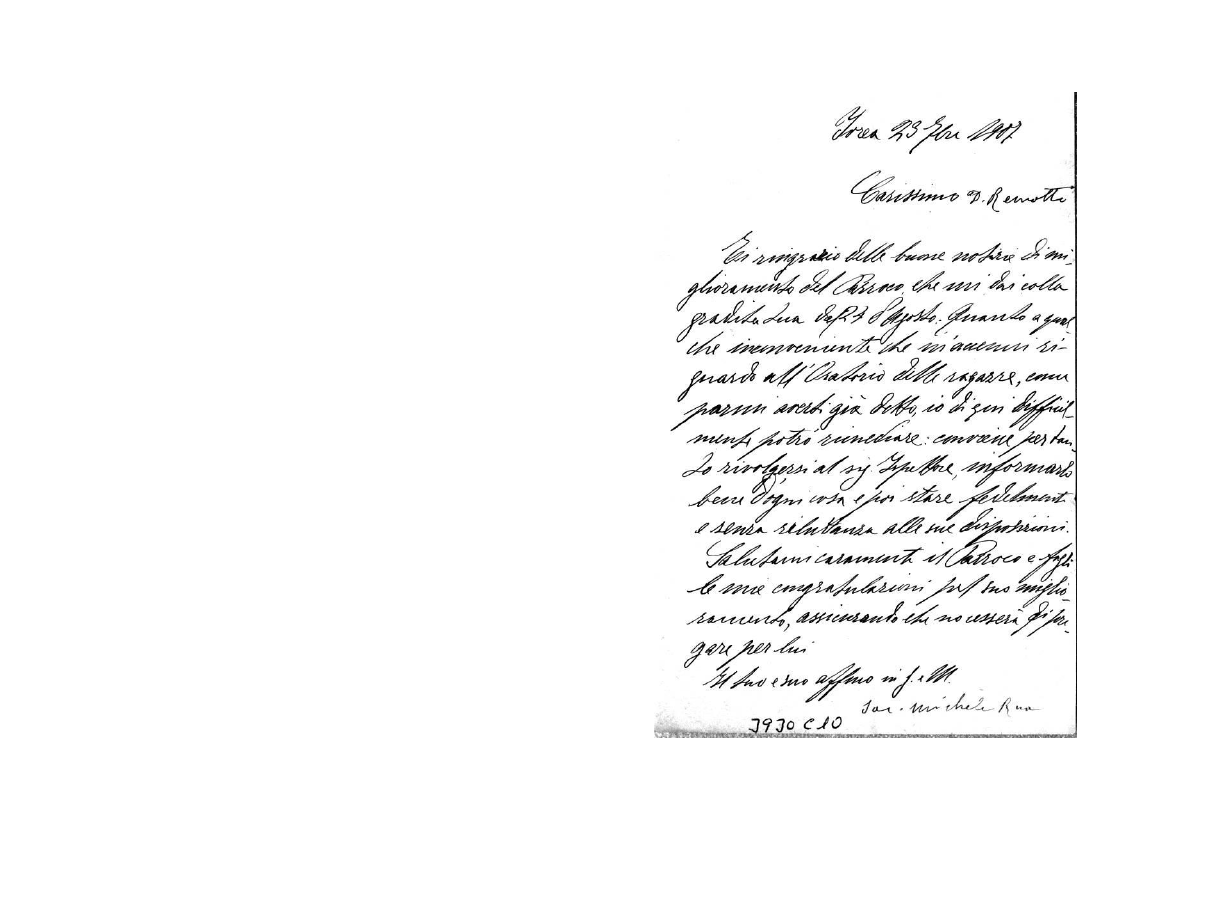 Ivrea 23 7bre 1907
Carissimo D. Remotti
Ti ringrazio delle buone notizie di mi-
glioramento del Parroco, che mi dai colla
gradita tua del 23 Agosto. Quanto a qual
che inconveniente che m'accenni ri-
guardo all'Oratorio delle ragazze, come
parmi averti già detto, io di qui difficil-
mente potrò rimediare: conviene pertan-
to rivolgersi al sig. Ispettore, informarlo
bene d'ogni cosa e poi stare fedelment
e senza reluttanza alle sue disposizioni.
Salutami caramente il Parroco e fagli
le mie congratulazioni pel suo miglio-
ramento, assicurando che no cesserà di pre-
gare per lui
Il tuo e suo affmo in G. e M.
Sac. Michele Rua
3930 C10